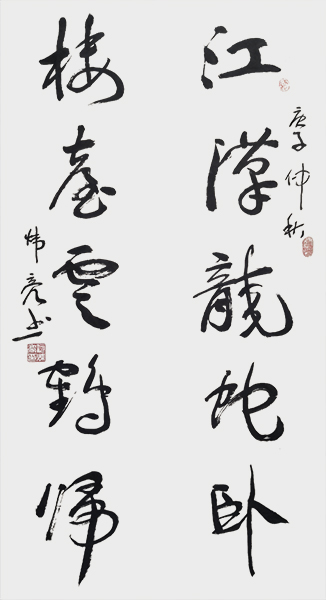 庚子仲秋
江漢龍蛇卧
樓臺雲鶴歸
炜亮书